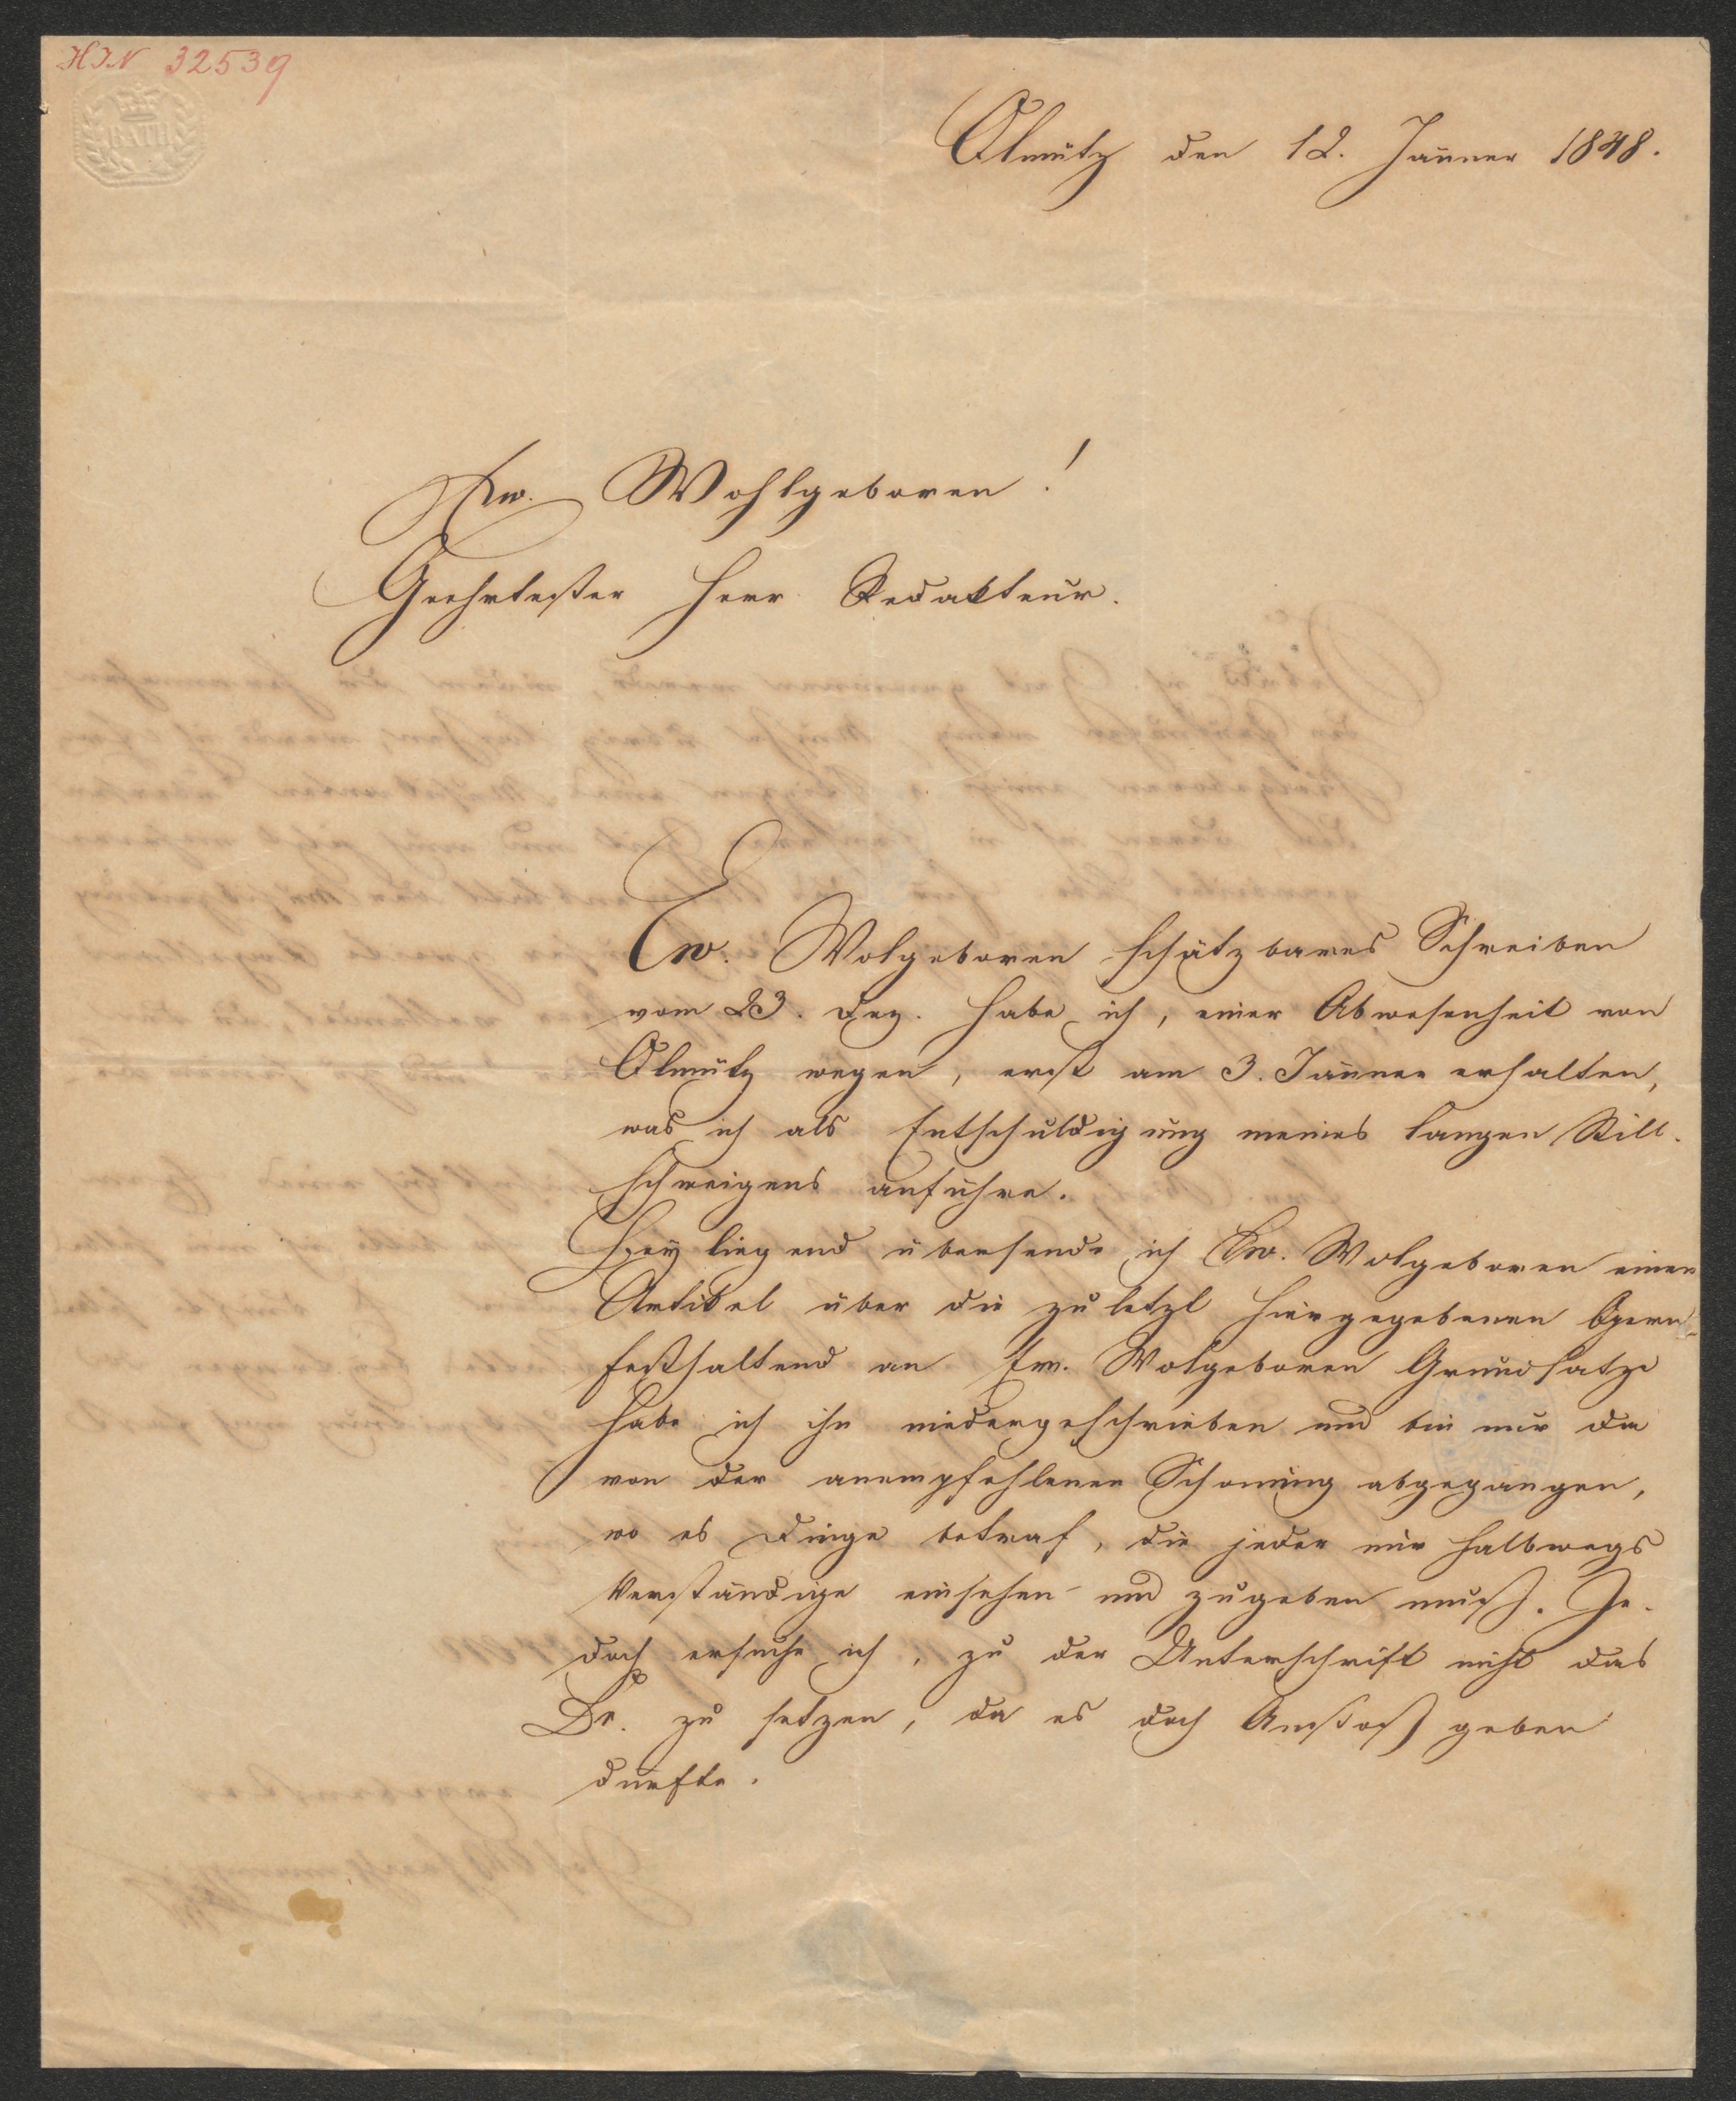 HIN 32539
BATH
Olmütz den 12. Jänner 1848.
Ew. Wohlgeboren!
Geehrtester Herr Redakteur.
Ew. Wolgeboren schätzbares Schreiben
vom 23. Dez. habe ich, einer Abwesenheit von
Olmütz wegen, erst am 3. Jänner erhalten,
was ich als Entschuldigung meines langen Still-
schweigens anführe.
Beyliegend übersende ich Ew. Wolgeboren einen
Artikel über die zuletzt hiergegebenen Opern-
festhaltend an Ew. Wolgeboren Grundsatze
habe ich ihn niedergeschrieben und bin nur da
von der anempfohlenen Schonung abgegangen,
wo es Dinge betraf, die jeder nur halbwegs
Verständige einsehen und zugeben muß. Je-
doch ersuche ich, zu der Unterschrift nicht das
Dr. zu setzen, da es doch Anstoß geben
dürfte.